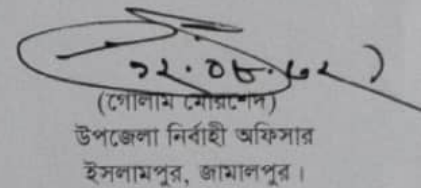 (গোলাম মোরশেদ)
উপজেলা নির্বাহী অফিসার
ইসলামপুর, জামালপুর।